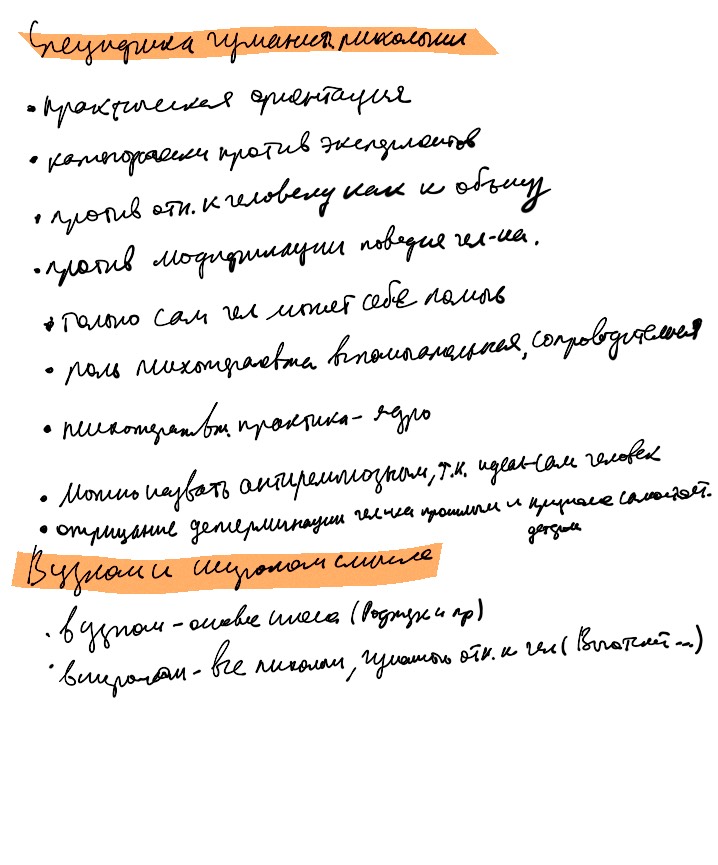 Специфика гуманист. психологии
• практическая ориентация
• категорически против экспериментов
• против отн. к человеку как к объекту
• против модификации поведения чел-ка.
• только сам чел может себе помочь
• роль психотерапевта вспомогательная, сопроводительная
• психотерапевт. практика – ядро
• Можно назвать антирелигиозным, т.к. идеал-сам человек
• отрицание детерминации чел-ка прошлым и
детством
В узком и широком смысле
• в узком – основе (Роджерс и пр)
• в широком – все психологи, гуманно отн. к чел (Выготский ...)